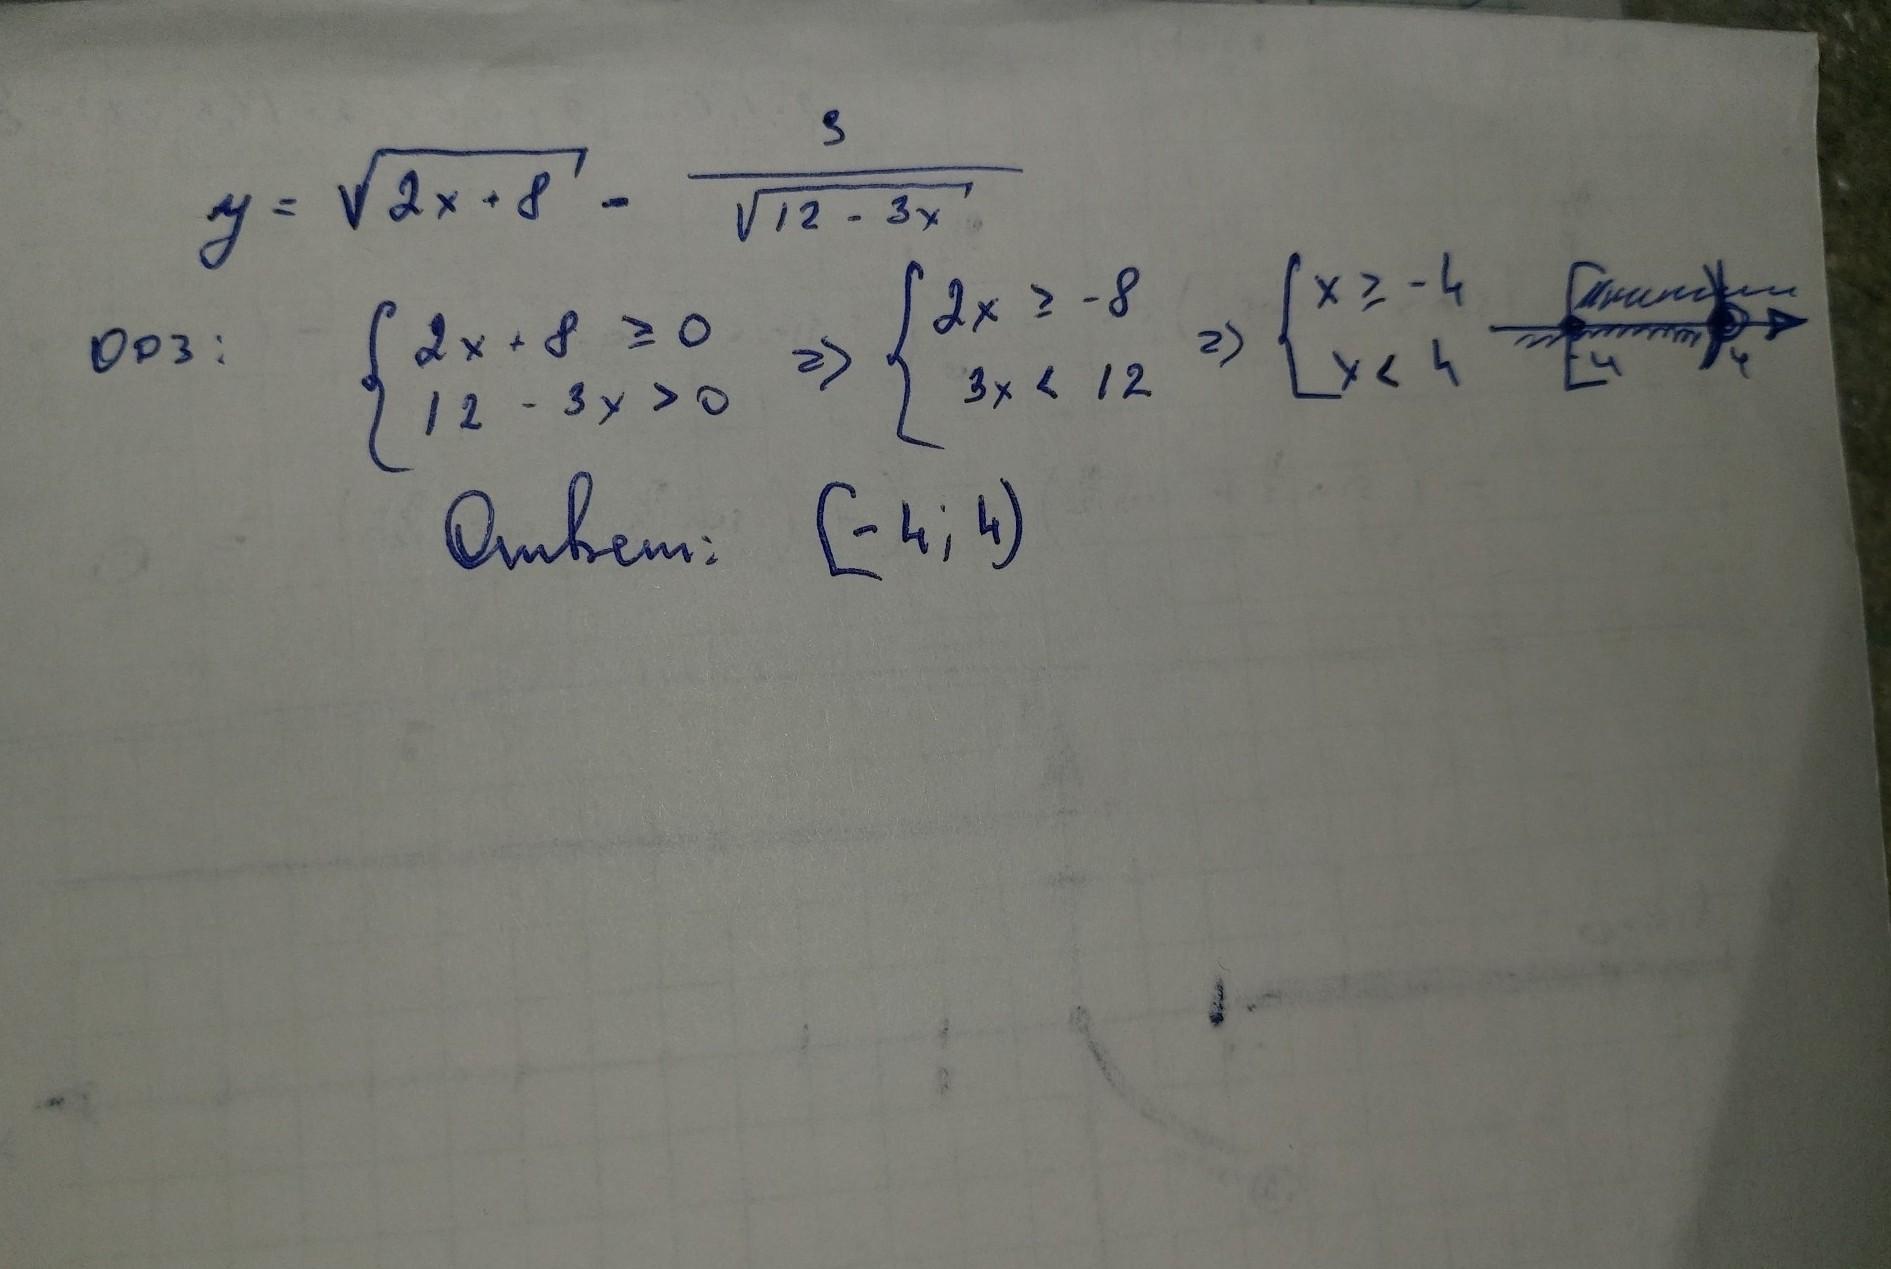 y = √(2x+8) - 3/√(12-3x)
ООЗ: { 2x+8 ≥ 0 12-3x > 0 => { 2x ≥ -8 3x < 12 => { x ≥ -4 x < 4 -4 4
Ответ: [-4; 4)